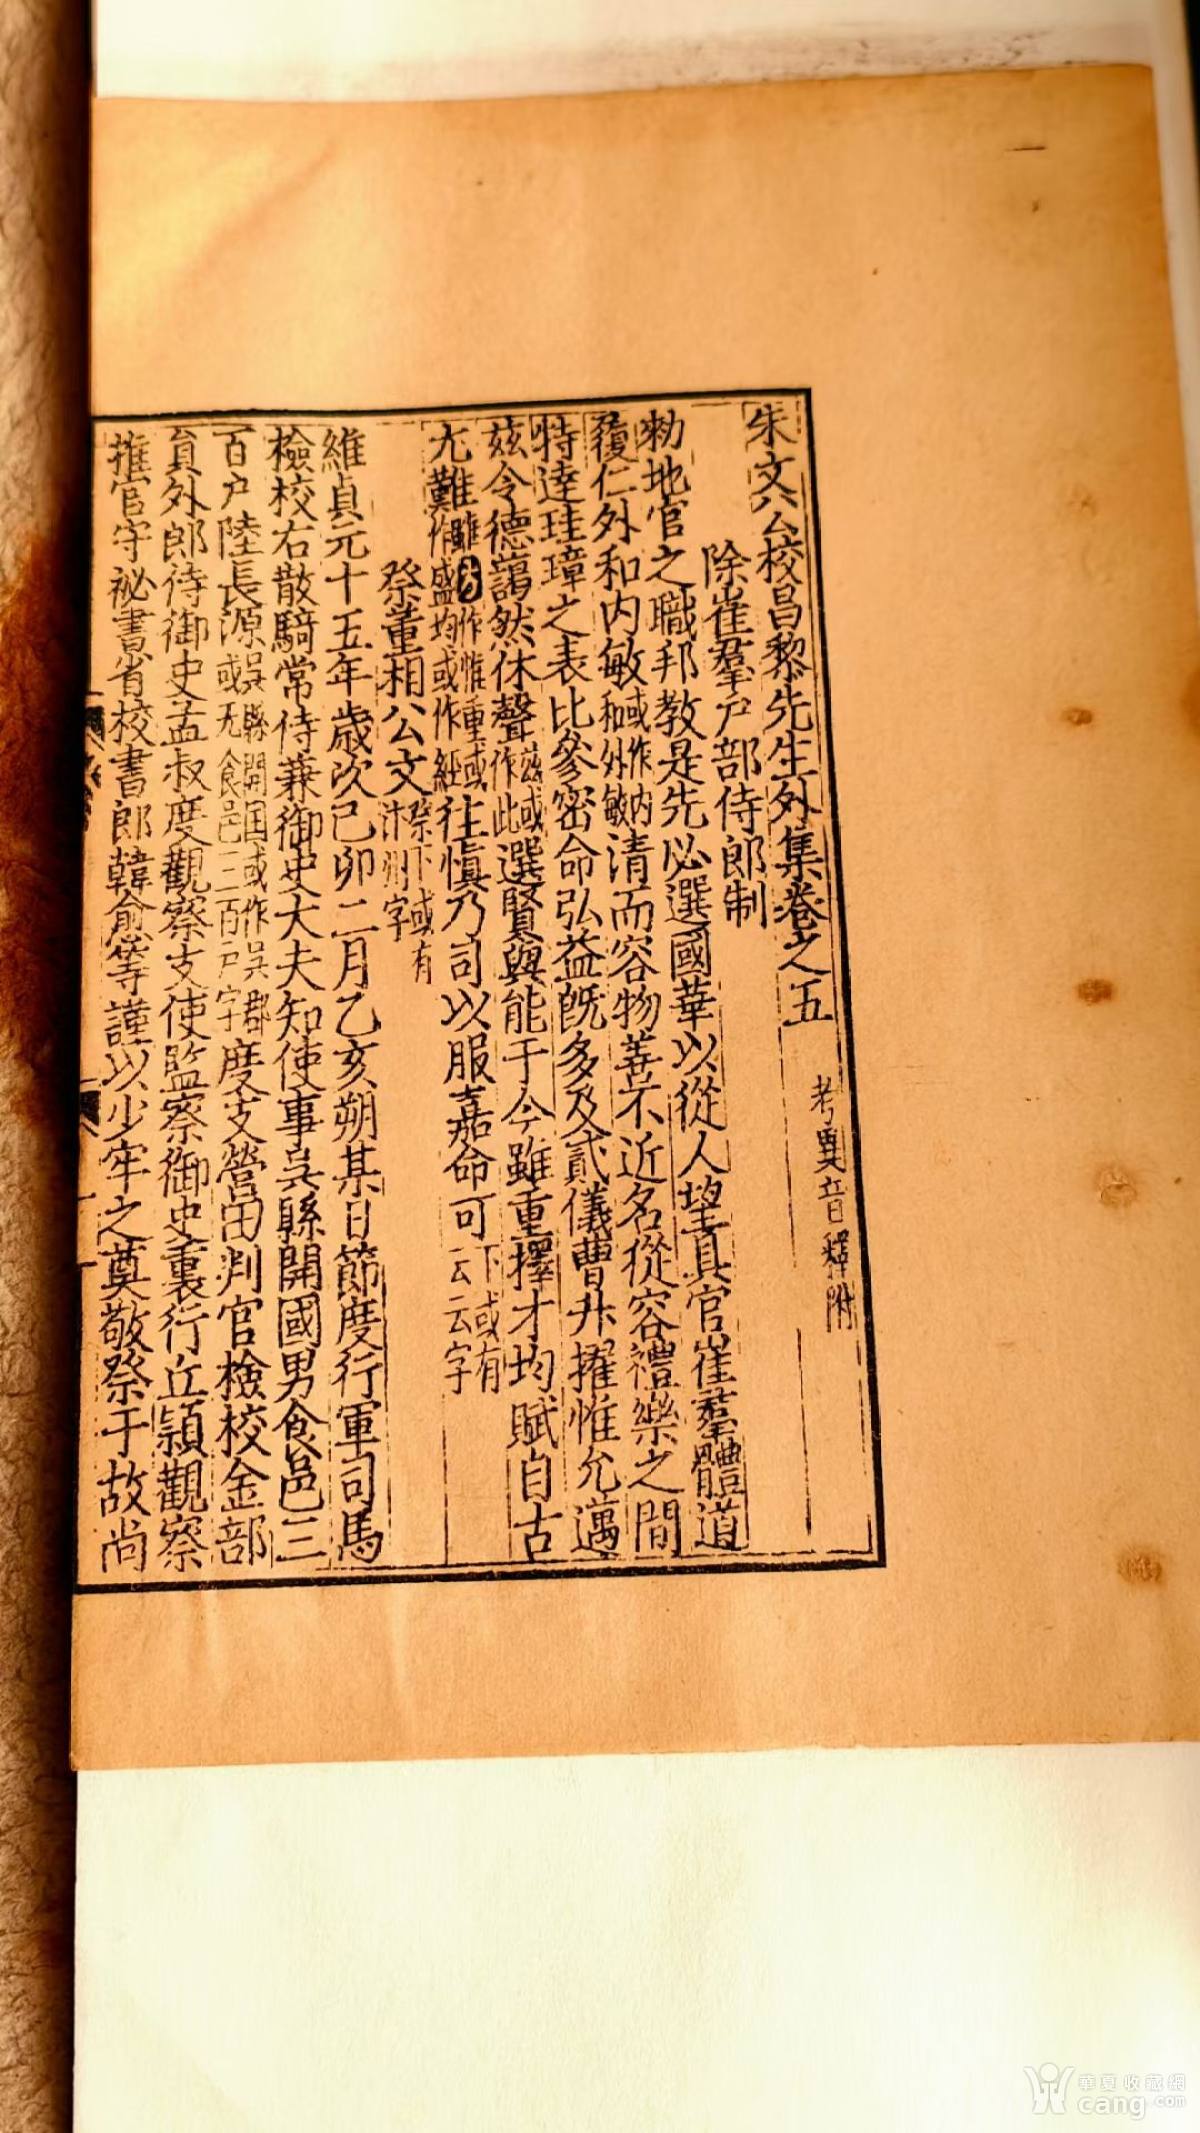 朱文公校昌黎先生外集卷之五 考異音釋附
除崔羣戶部侍郎制
勑地官之職邦教是先必選國華以從人望具官崔羣體道
履仁外和内敏或作内和外敏清而容物善不近名從容禮樂之間
特達珪璋之表比參密命弘益旣多及貳儀曹升擢惟允邁
茲令德藹然休聲茲或作此選賢與能于今雖重擇才均賦自古
尤難雖或作惟重或作盛均或作經往慎乃司以服嘉命可下或有云云字
祭董相公文祭下或有汴州字
維貞元十五年歲次己卯二月乙亥朔某日節度行軍司馬
檢校右散騎常侍兼御史大夫知使事吳縣開國男食邑三
百户陸長源吳縣開国或作吳郡或无食邑三百户字度支營田判官檢校金部
貟外郎待御史孟叔度觀察支使監察御史裏行丘頴觀察
推官守祕書省校書郎韓愈等謹以少牢之奠敬祭于故尚
華夏收藏網
cang.com